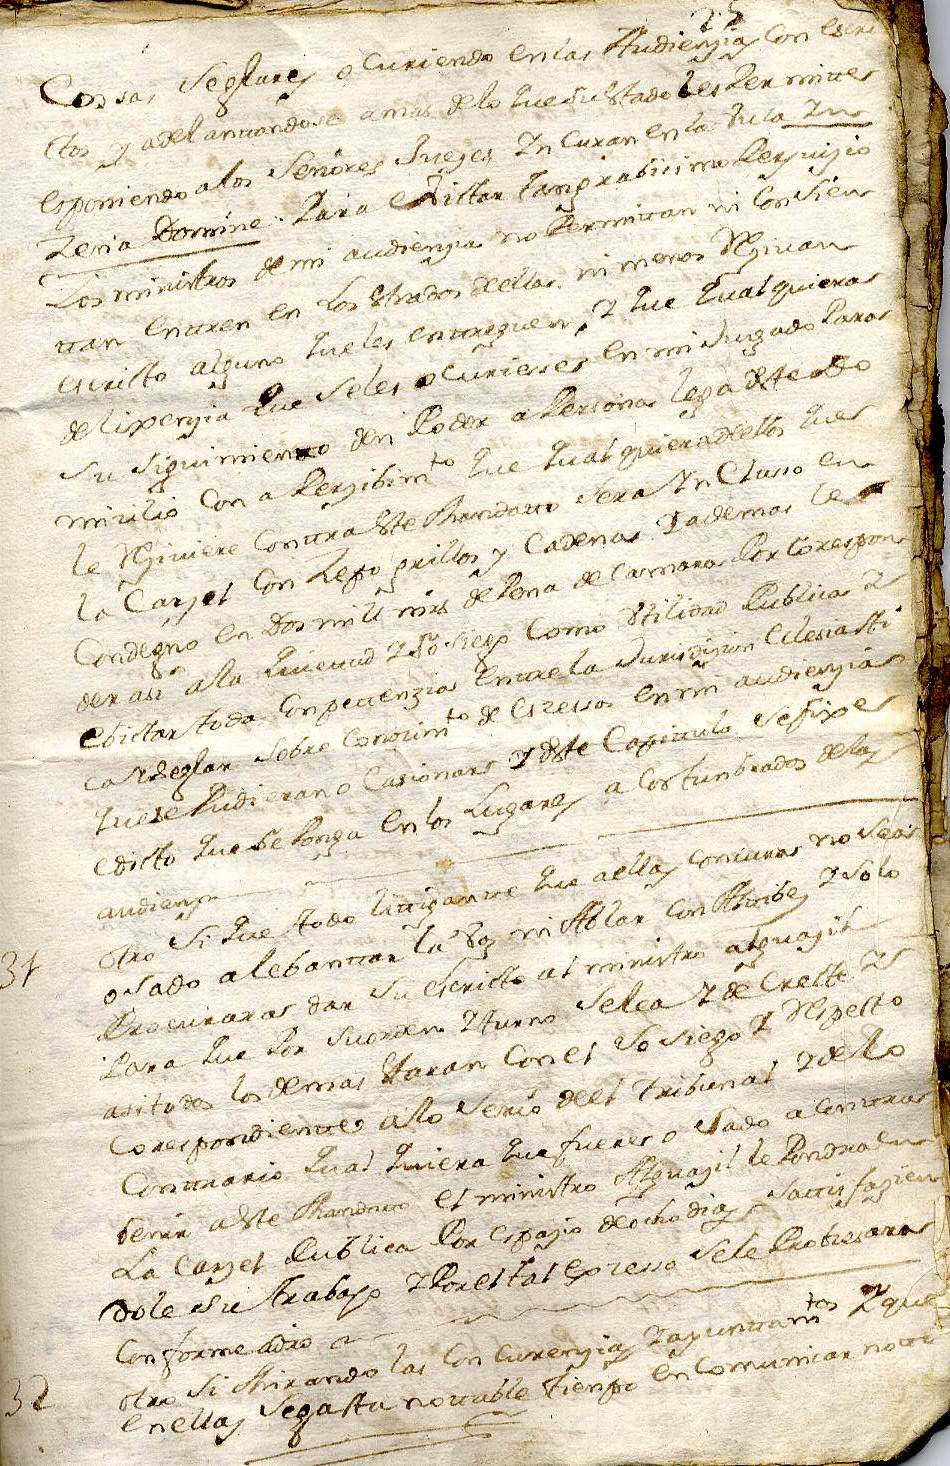 25
Cosas Seglares ocuriendo en las Audienzias con escri
ctos y adelantandose a mas de lo que su estado les permite
esponiendo a los Señores Juezes Yncuran en la Bula Yn
Zena Domine Para ebictar tan grabicimo Perjuizio
Los ministros de mi audienzia no Permitan ni Consien
tan entren en los estrados dellas ni menos Resivan
escricto alguno que les entreguen, Y que qualquiera
delispenzia que seles ocuriese en mi Juzgado Para
su siguimiento den Poder a Persona lega deste do
micilio Con aPerzibimto que qualquiera dellos que
le Resiviere contra este Mandato sera Yncluso en
la Carzel Con zepo grillos y Cadenas Y ademas le
Condegno en Dos mill mrs de Pena de Camara Por Corespon
der asi a la quietud Y Sosiego Como Utilidad Publica Y
ebictar toda Conpetenzia entre la Jurisdizion Eclesiasti
ca Y Seglar sobre Conozimto de exzesos en mi audienzia
que se Pudieran ocasionar Y deste Capitulo se fixe
edicto que se Ponga en los Lugares acostunbrados de la
audienzia
31 otro Si que todo litigante que a ellas Concura no sea
osado a lebantar la Boz ni Ablar con Altibez Y solo
Procurara dar su escricto al ministro alguazil
Para que Por su orden Y turno se lea Y decrete Y
asi todos los demas estaran con el Sosiego Y Respecto
Corespondiente a lo serio del tribunal Y de lo
Contrario qual quiera que fuere osado a Contra
benir a este Mandato el ministro Alguazil le Pondra en
La Carzel Publica Por espazio de ocho dias satisfazien
dole su trabajo Y Por el tal exzeso se le Prozesara
Conforme a dro
32 otro Si Mirando las Concurenzias Y ayuntamtos Y que
en ellas se gasta notable tiempo en Comunicar noti